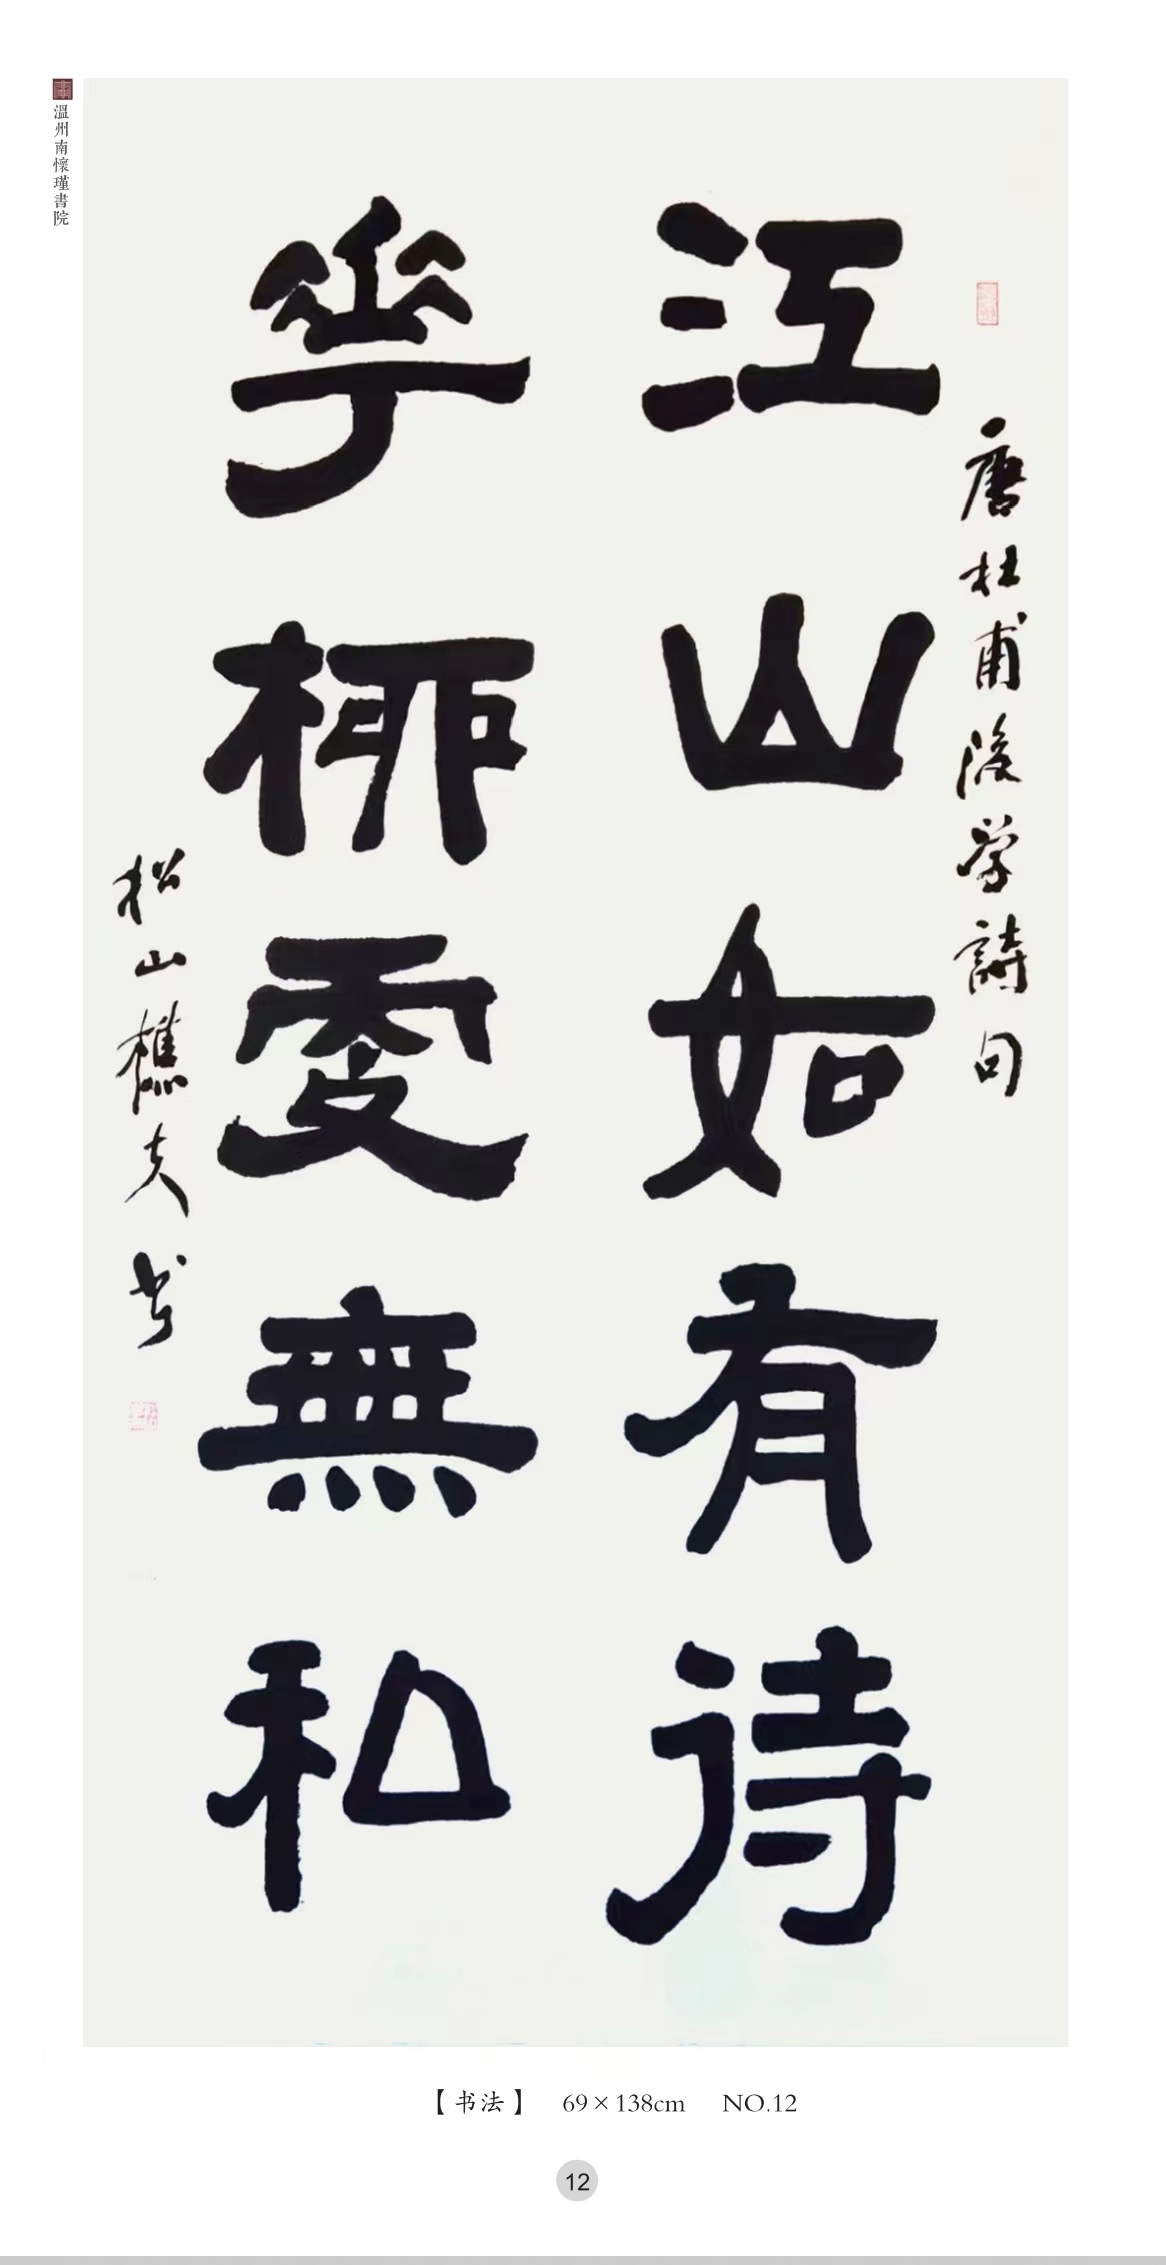 溫州南懷瑾書院
唐杜甫後学詩句
江山如有待
華桺更無私
松山樵夫书
【书法】 69×138cm NO.12
12